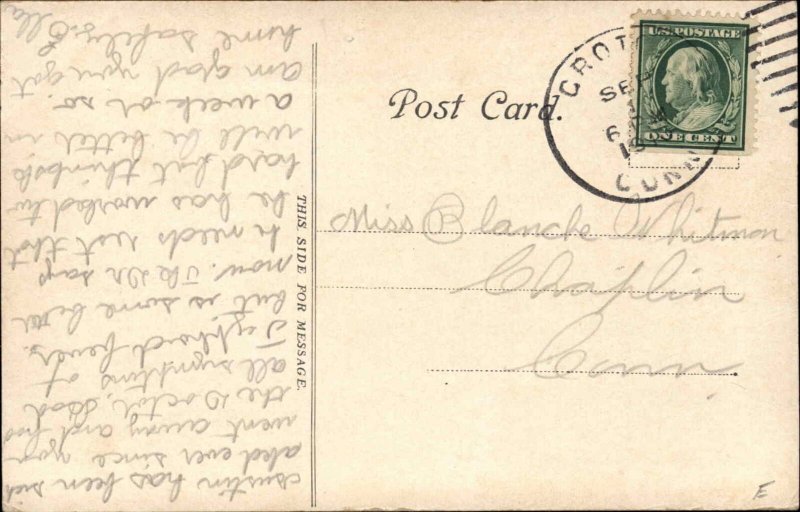 Post Card.
U.S. POSTAGE
ONE CENT
GROT
SEP
6
CONN
THIS SIDE FOR MESSAGE.
Miss Blanche Whitman
Chaplin
Conn.
has been sick
abed ever since you
went away and had
the Doctor. Had
all symptoms of
Typhoid fever.
but is some better
now. The Dr says
he needs rest that
he has worked too
hard but thinks he
will be better in
a week or so.
am glad you got
home safely. Ella
E